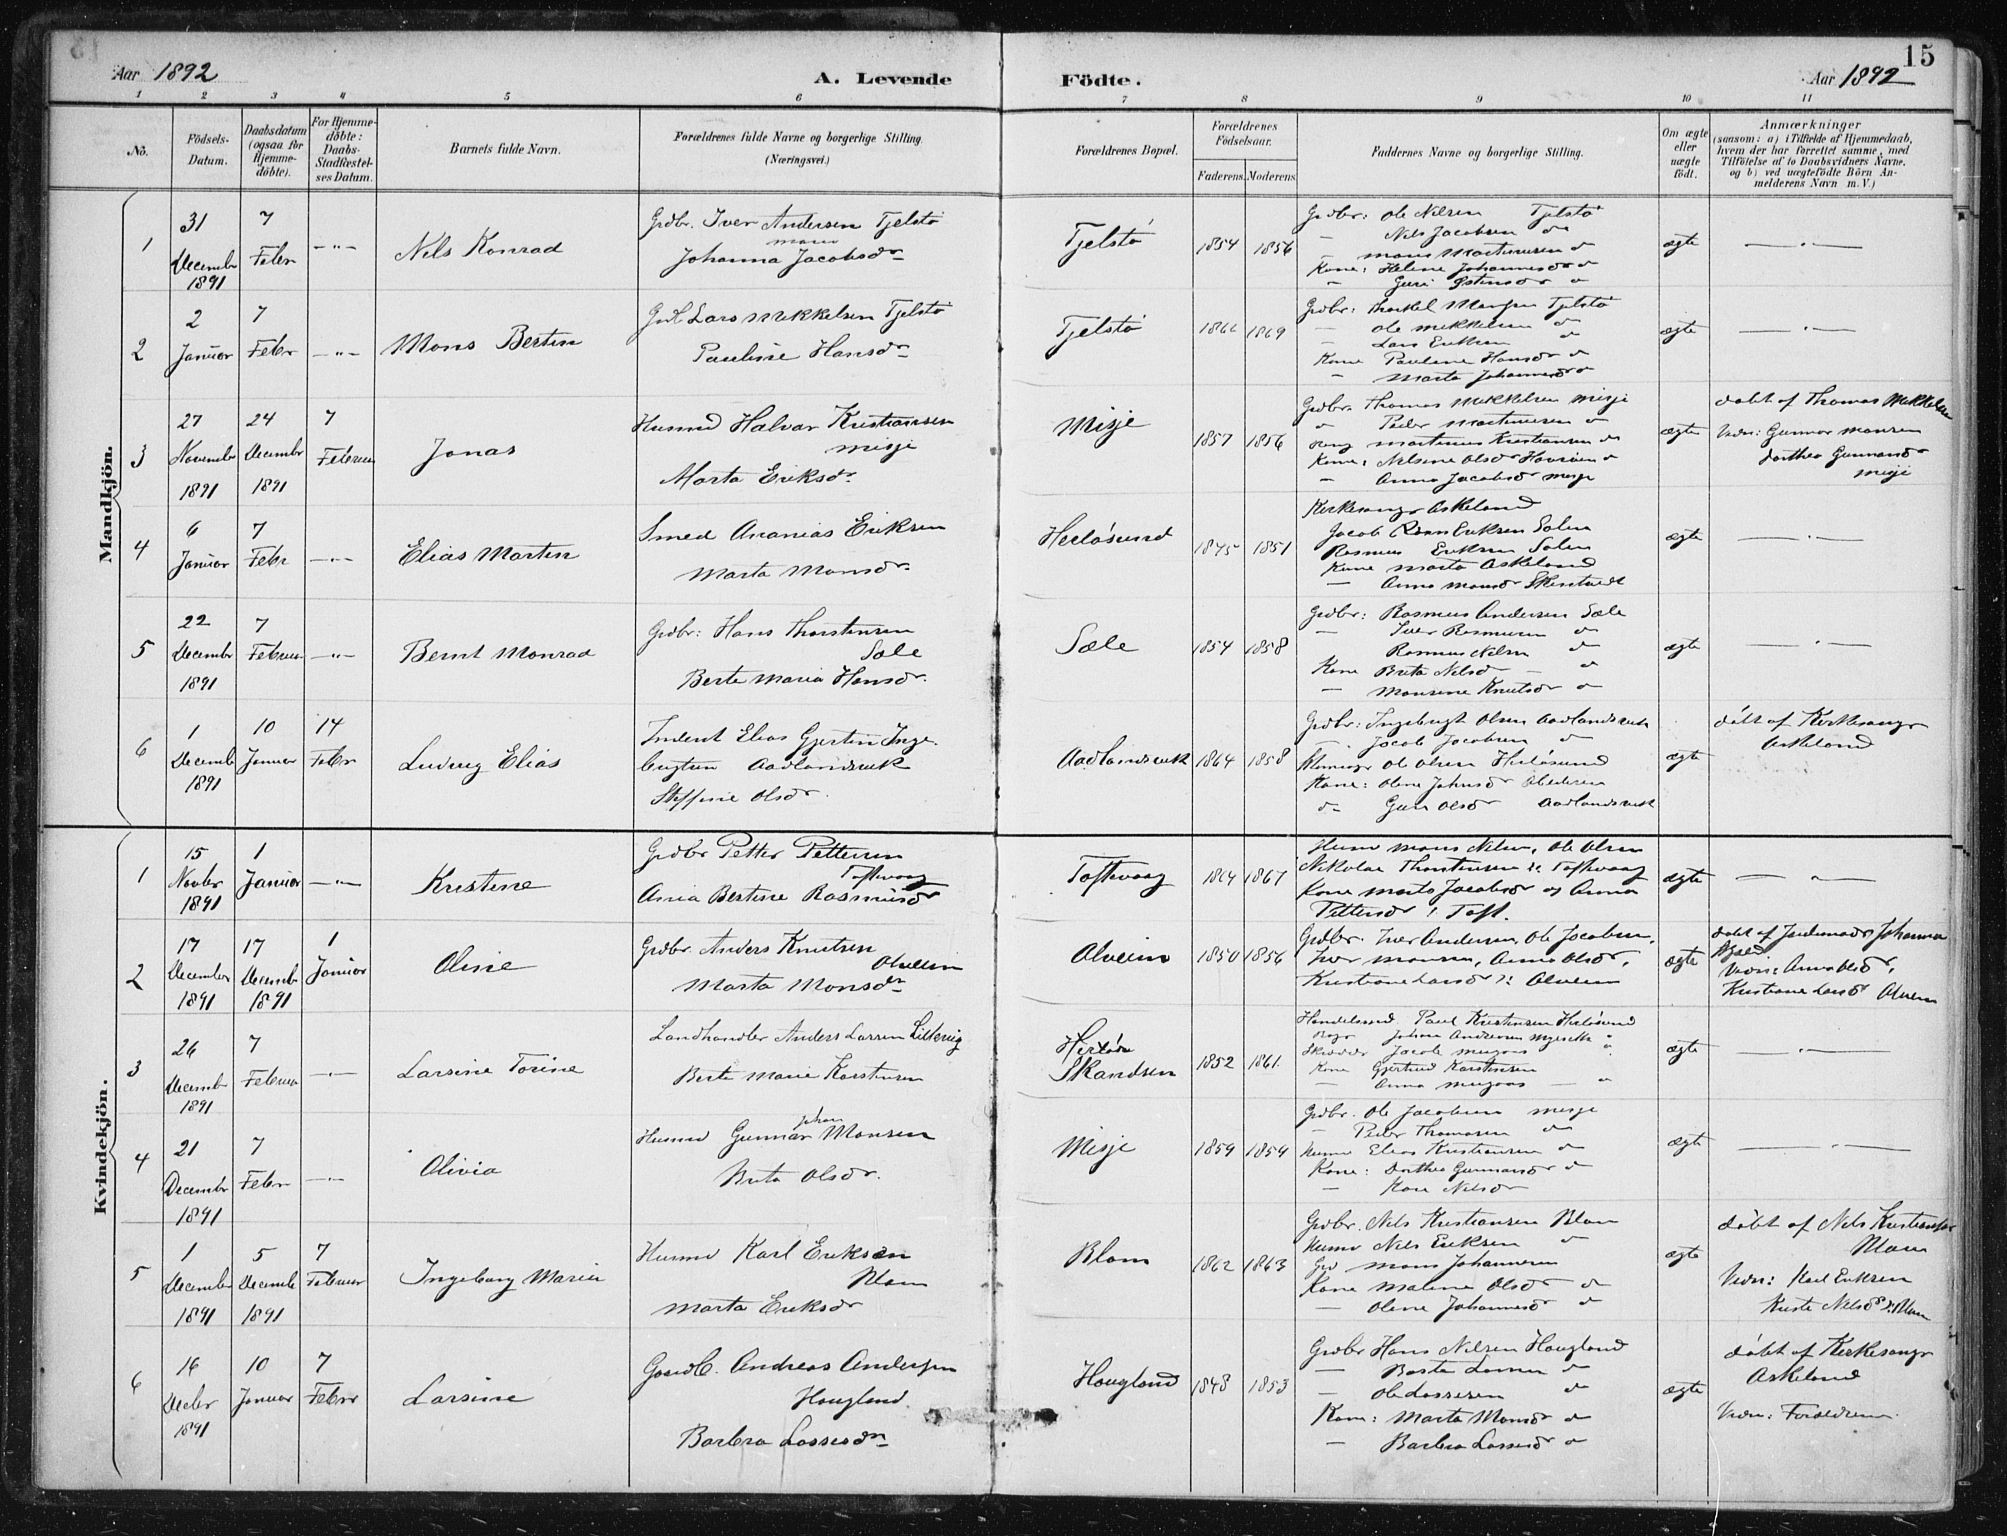 15
Aar 1892
A. Levende
Födte.
Aar 1892
1 2 3 4 5 6 7 8 9 10 11
No.
Födsels-
Datum.
Daabsdatum
(ogsaa for
Hjemme-
döbte).
For Hjemme-
döbte:
Daabs-
Stadfæstel-
ses Datum.
Barnets fulde Navn.
Forældrenes fulde Navne og borgerlige Stilling.
(Næringsvei.)
Forældrenes Bopæl.
Forældrenes
Födselsaar.
Faderens. Moderens.
Faddernes Navne og borgerlige Stilling.
Om ægte
eller
uægte
födt.
Anmærkninger
(saasom: a) i Tilfælde af Hjemmedaab,
hvem der har forrettet samme, med
Tilföielse af to Daabsvidners Navne.
og b) ved uægtefödte Börn An-
melderens Navn m. V.)
Mandkjön.
1
31
December
1891
7
Febr
Nils Konrad
Grdbr. Iver Andersen Tjelstø
Johanna Jacobsdr
Tjelstø
1854 1856
Grdbr: Ole Nilsen Tjelstø
Nils Jacobsen do
Mons Martinusen do
Kone: Helene Johannesdr do
Guri Østensdr do
ægte
2
2
Januar
7
Febr
Mons Bertin
Lars Mikkelsen Tjelstø
Pauline Hansdr
Tjelstø
1869
Grdbr: Thorkel Tjelstø
Ole Mikkelsen do
Lars Eriksen do
Kone Pauline Hansdr do
Marta Johannesdr do
ægte
3
27
November
1891
24
December
1891
7
Februar
Jonas
Husmd Halvor Kristiansen
Misje
Marta Eriksdr
Misje
1857 1856
Grdbr. Thomas Mikkelsen Misje
Peder Martinusen do
Martinus Kristiansen do
Kone: Nilsine Olsdr
Anna Jacobsdr Misje
ægte
døbt af Thomas Mikkelsen
Vidn: Gunnar Monsen
Dorthea Gunnarsdr
Misje
4
6
Januar
7
Febr
Elias Martin
Smed Ananias Eriksen
Marta Monsdr
Herløsund
1845 1851
Kirkesanger Askeland
Jacob Eriksen Solem
Rasmus Eriksen Solem
Kone Marta Askeland
Anna Monsdr
ægte
5
22
December
1891
7
Februar
Bernt Monrad
Grdbr: Hans Thorstensen
Sæle
Berte Maria Hansdr
Sæle
1854 1858
Grdbr: Rasmus Andersen Sæle
Iver Rasmusen do
Rasmus Nilsen do
Kone Brita Nilsdr do
Monsine Knutsdr do
ægte
6
1
December
1891
10
Januar
14
Febr
Ludvig Elias
Elias Gjertin Inge-
brigtsen Aadlandsvik
Steffine Olsdr
Aadlandsvik
1864 1858
Grdbr: Ingebrigt Olsen Aadlandsvik
Jacob Jacobsen do
Ole Olsen Herløsund
Kone: Olene Johnsdr
do Guri Olsdr Aadlandsvik
ægte
døbt af Kirkesanger
Askeland
Kvindekjön.
1
15
Novbr
1891
1
Januar
Kristine
Grdbr Petter Pettersen
Toftevaag
Anna Bertine Rasmusdr
Toftevaag
1864 1867
Husmd Mons Nilsen, Ole Olsen
Nikolai Thorstensen Toftevaag
Kone Marta Jacobsdr og Anna
Pettersdr i Toft.
ægte
2
17
December
1891
17
December
1891
1
Januar
Oline
Grdbr. Anders Knutsen
Olveim
Marta Monsdr
Alveim
1850 1856
Grdbr. Iver Andersen, Ole Jacobsen,
Iver Monsen, Anna Olsdr,
Kristiane Larsdr Alveim
ægte
døbt af Jordemodr Johanna
Vidn: Anna Olsdr,
Kristiane Larsdr Alveim
3
26
December
1891
7
Februar
Larsine Torine
Landhandler Anders Larsen Lillevig
Berte Marie Karstensen
Herløsø
Skandsen
1852 1861
Handelsmd Paul Kristensen Herløsund
Johan Andersen
Jacob
Kone Gjertrud Karstensen
Anna
ægte
4
21
December
1891
7
Febr
Olivia
Husmd Gunnar Johan Monsen
Brita Olsdr.
Misje
1859 1859
Grdbr. Ole Jacobsen Misje
Peder Thomasen do
Husmd Elias Kristiansen do
Kone: Dorthea Gunnarsdr do
Kari Nilsdr
ægte
5
1
December
1891
5
December
1891
7
Februar
Ingeborg Maria
Husmd Karl Eriksen
Blom
Marta Eriksdr
Blom
1862 1863
Grdbr. Nils Kristiansen Blom
Husmd Nils Eriksen do
Mons Johannesen
Kone Malene Olsdr do
Olene Johannesdr do
ægte
døbt af Nils Kristiansen
Blom
Vidn: Karl Eriksen
Nilsdr Blom
6
16
Decbr
1891
10
Januar
7
Febr
Larsine
Andreas Andersen
Hougland
Barbra Lassesdr
Hougland
1848 1853
Grdbr Hans Nilsen Hougland
do
Ole Lassesen do
Kone: Marta Monsdr do
Barbra Lassesdr do
ægte
døbt af Kirkesanger
Askeland
Vidn: Forældrene